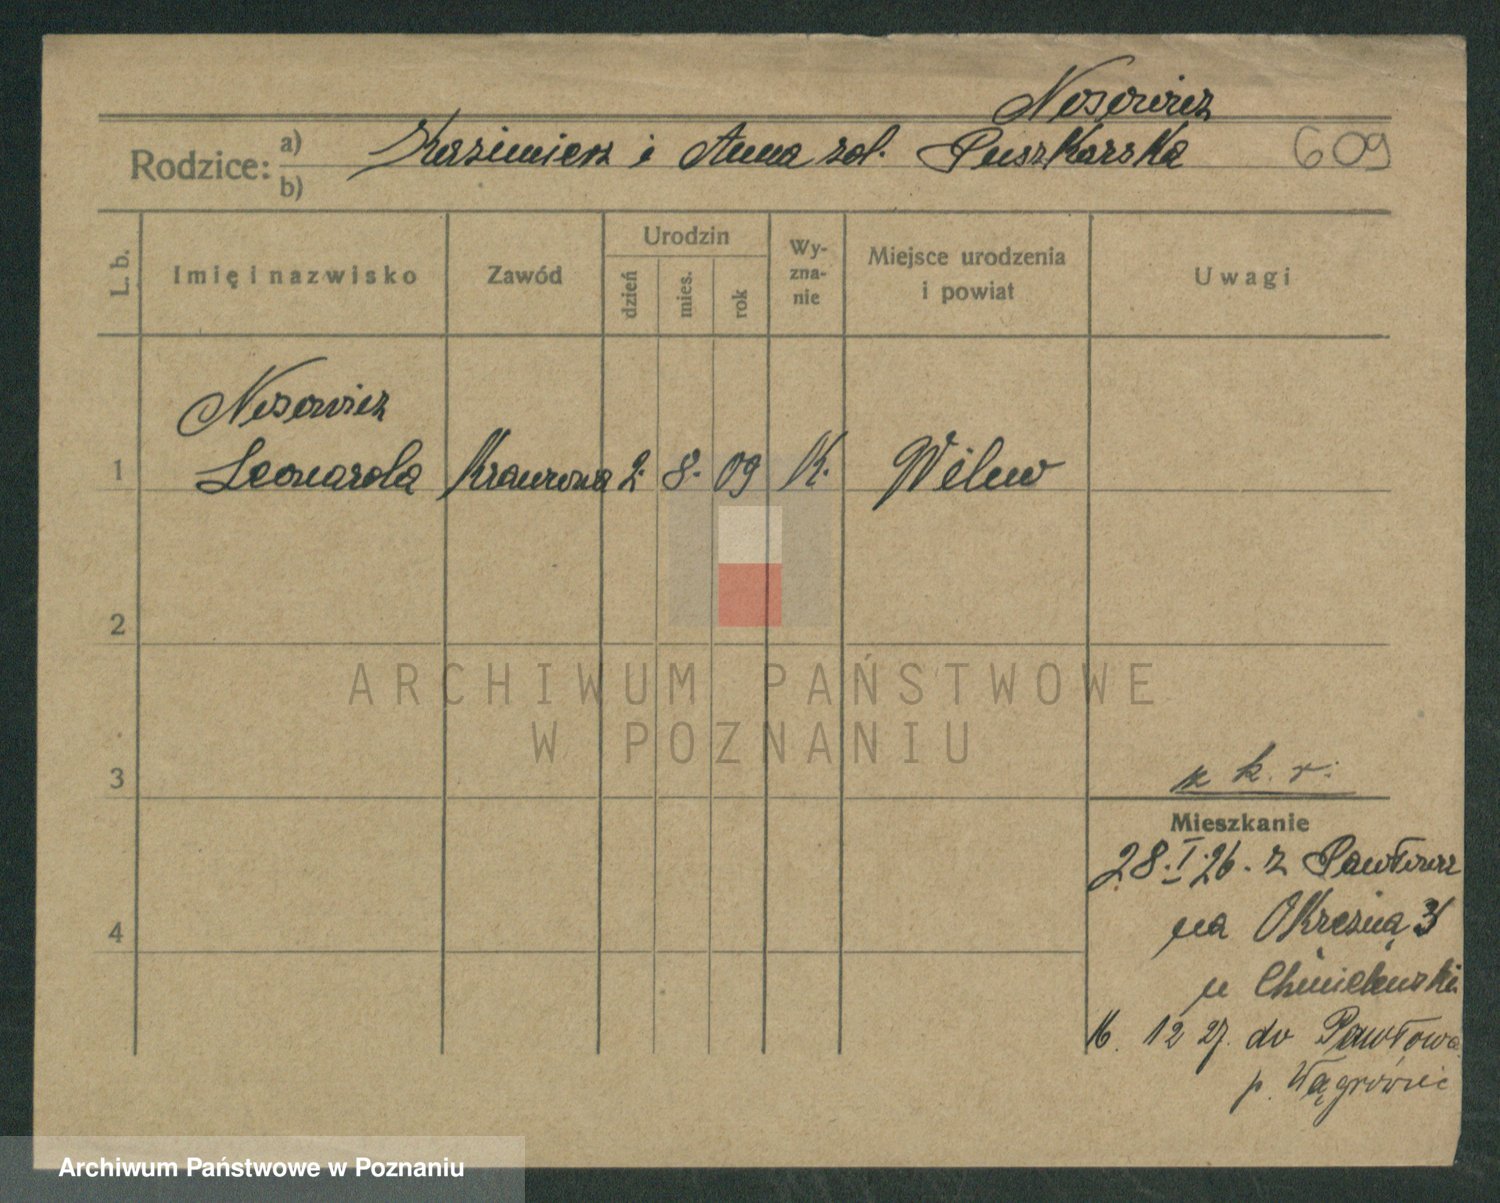 Nosowicz
Rodzice: a) Kazimierz i Anna zd. Puszkarska 609
b)
L. b. Imię i nazwisko Zawód Urodzin dzień mies. rok Wy-zna-nie Miejsce urodzenia i powiat Uwagi
Nosowicz
1 Leonarda Krawcowa 2. 8. 09 K. Wilno
2
ARCHIWUM PAŃSTWOWE
W POZNANIU
3 k. r.
Mieszkanie
28.I.26. z Pawłowa
4 na Okrężną 3
u Chmielewski
16. 12 27. do Pawłowa
p. Wągrówiec
Archiwum Państwowe w Poznaniu